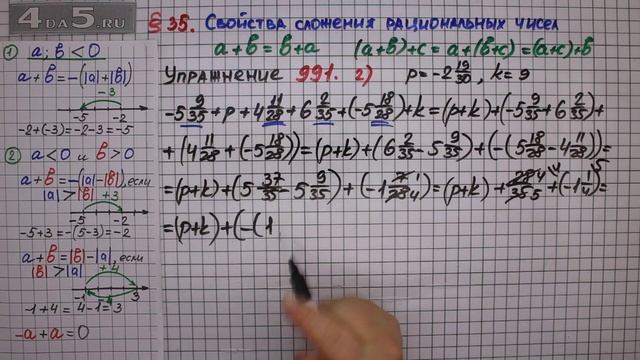 4DA5.RU
§ 35. Свойства сложения рациональных чисел
a+b=b+a (a+b)+c=a+(b+c)=(a+c)+b
Упражнение 991. 2) p=-2 19/30, k=9
-5 9/35+p+4 11/28+6 2/35+(-5 18/28)+k=(p+k)+(-5 9/35+6 2/35)+
+(4 11/28+(-5 18/28))=(p+k)+(6 2/35-5 9/35)+(-(5 18/28-4 11/28))=
=(p+k)+(5 37/35-5 9/35)+(-1 7/28 1/4)=(p+k)+28/35 4/5+(-1 1/4)=
=(p+k)+(-(1
1) a; b<0
a+b=-(|a|+|b|)
-3
-5 -2
-2+(-3)=-2-3=-5
2) a<0 и b>0
a+b=-(|a|-|b|), если
|a|>|b| +3
-5 -2
-5+3=-(5-3)=-2
a+b=|b|-|a|, если
|b|>|a| +4
-1 3
-1+4=4-1=3
-a+a=0